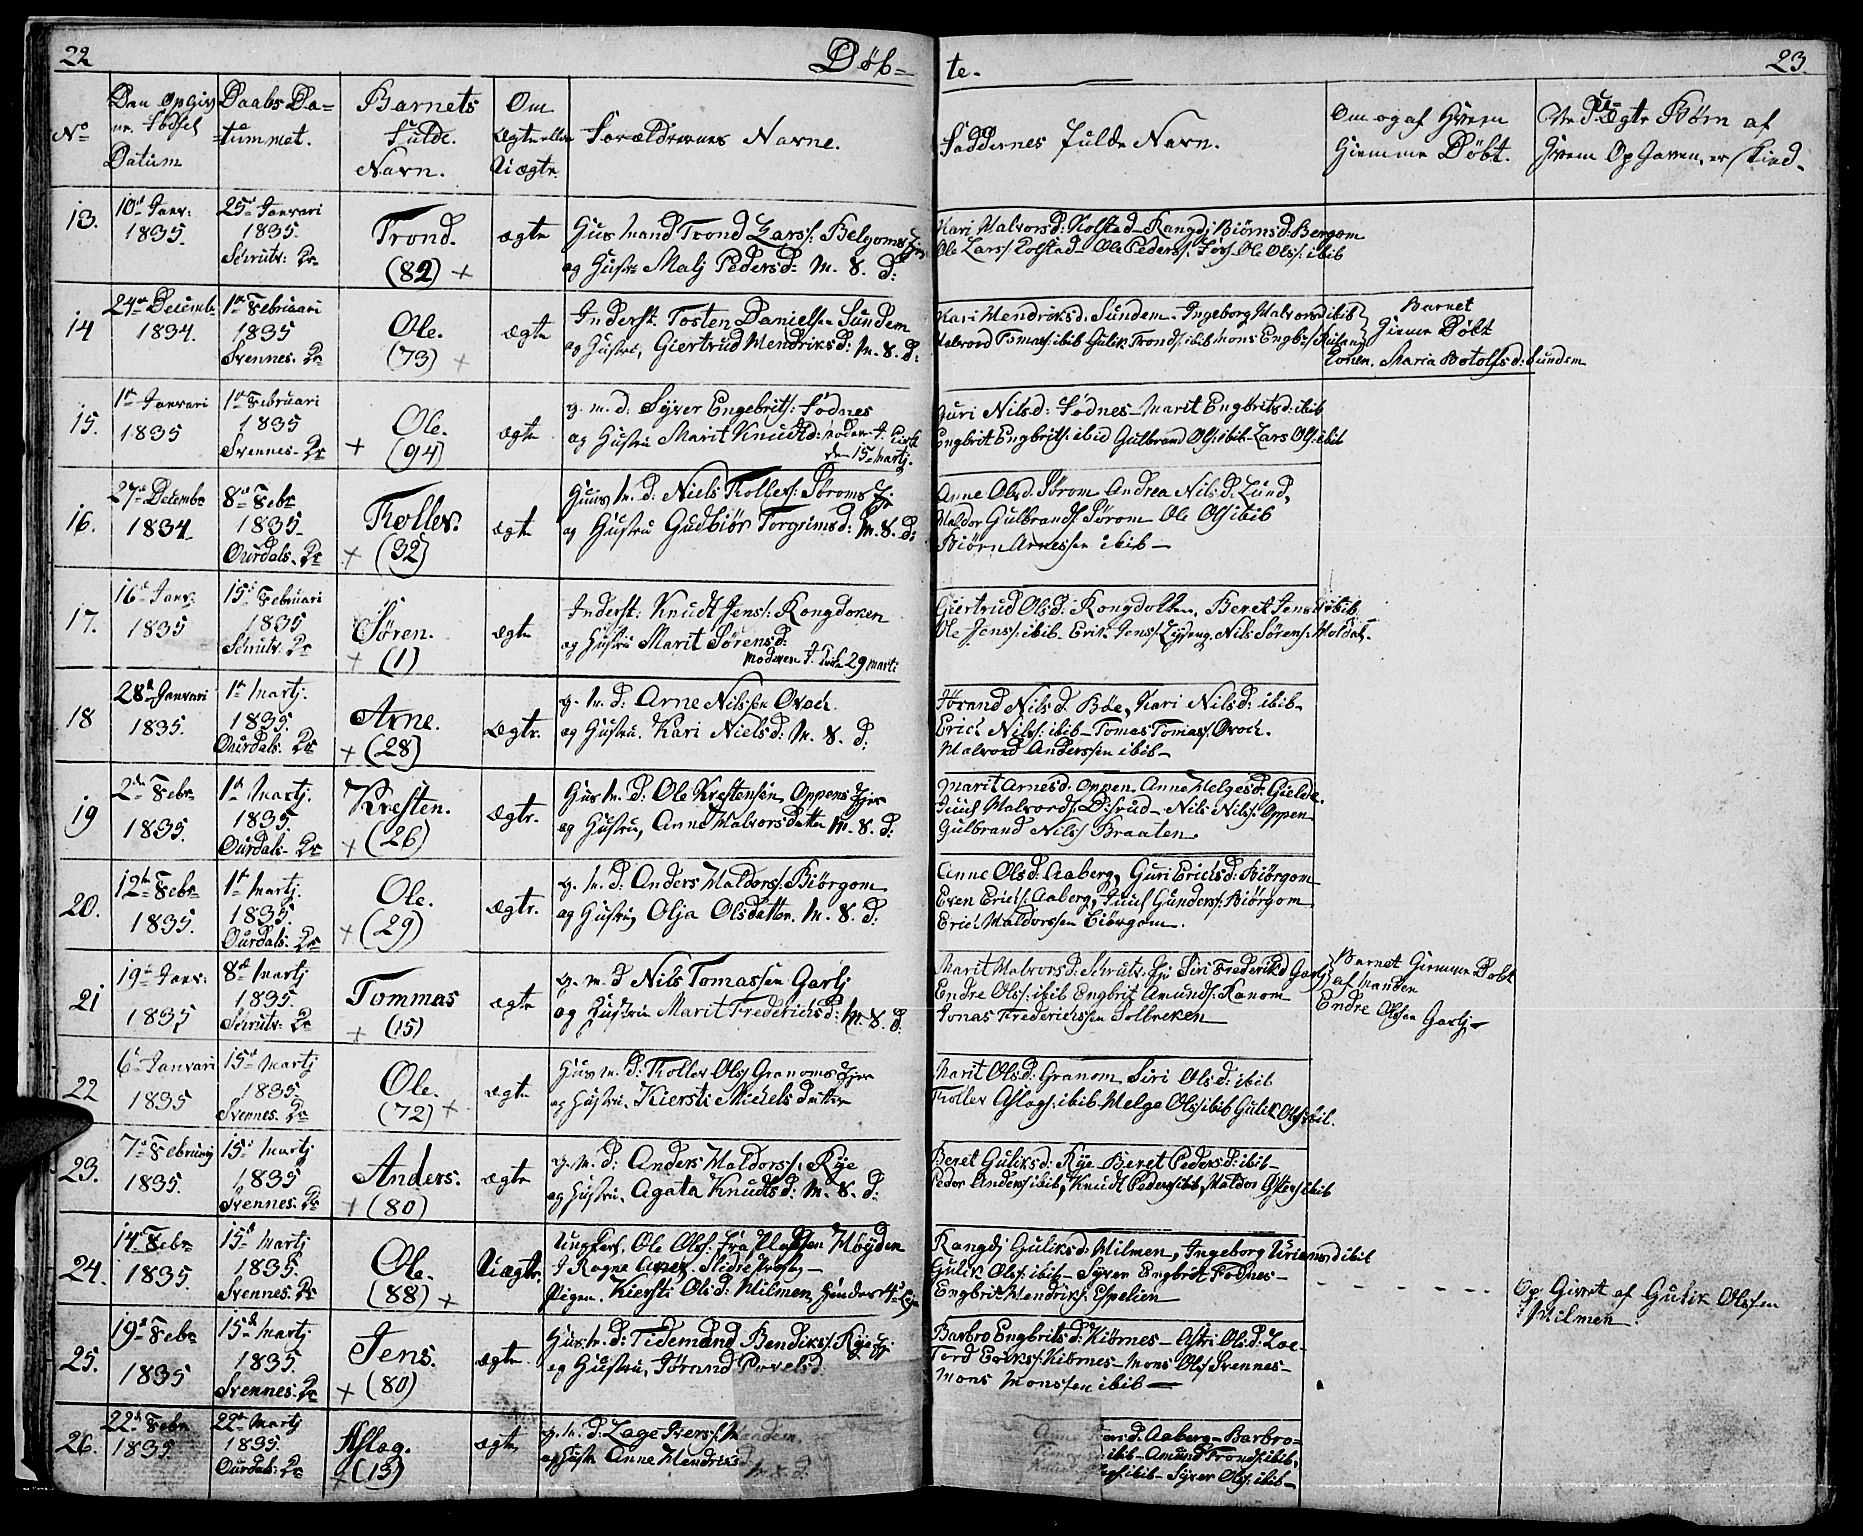 22
Døb-
te.
23
No
Den Opgiv
ne Fødsel
Datum
Daabs Da-
tummet.
Barnets
Fulde.
Navn.
Om
ægte eller
Uægte
Forældrenes Navne.
Faddernes fulde Navn.
Om og af Hvem
Hiemme Døbt.
Ved Uægte Børn af
Hvem Opgaven er skied.
13.
10de Janv:
1835.
25de Janvari
1835.
Schrutv: Kr
Trond.
(82) +
ægte
Huusmand Trond Larss: Belgoms Eje
og Hustru Malj Pedersd: M. S. D:
Kari Halvorsd: Kolstad - Rangdj Biørnsd: Bergom
Ole Larss: Kolstad - Ole Pederss: - Ole Olss: ibib
14
24de Decembr
1834.
1ste Februari
1835
Svennes. Kr
Ole.
(73) +
ægte
Inderst: Tosten Danielsen Sundem
og Hustru, Giertrud Hendriksd: M. S. D:
Kari Hendriksd. Sundem - Ingeborg Halvorsd ibib
Halvord Tomass: ibib Gulik Tronds: ibib Mons Engbrs
Barnet
Hieme Døbt
Conen, Maria Botolfsd: Sundem
15.
1ste Janvari
1835
1ste Februari
1835
Svennes. Kr
+
Ole.
(94)
ægte
g. m. d: Syver Engebrits: Fødnes
og Hustru Marit Knudtsd: Moder I. Kirk
den 15de Martj.
Guri Nilsd: Fødnes - Marit Engbritsd: ibib
Engbrit Engbrits: ibid Gulbrand Ols: ibib - Lars Ols: ibib
16.
27de Decembr
1834
8de Febr
1835
Ourdals. Kr
+
Tholler.
(32)
ægte
Huus m. d: Niels Thollers: Sørums Ej:
og Hustru Gudbiør Torgrimsd: M. S. D:
Anne Olsd. Sørom Andrea Nilsd. Lund,
Haldor Gulbrands: Sørom Ole Ols: ibib
Biørn Arnessen ibib -
17.
16de Janv:
1835
15de Februari
1835
Schrutv: Kr
+
Søren.
(1)
ægte
Inderst: Knudt Jenss: Kongdoken
og Hustru Marit Sørensd:
Moderen I. Kirk 29 marti
Giertrud Olsd: Kongdolken, Beret Jensd ibib
Ole Jenss: ibib. Erik Jenss: Nils Sørens: Moldal.
18
28de Janvari
1835.
1ste Martj.
1835.
Ourdals. Kr
+
Arne.
(28)
ægte.
g. m. d: Arne Nilssen Qvach.
og Hustru. Kari Nielsd: M. S. D:
Jørand Nilsd. Bøe, Kari Nilsd: ibib-
Erich Nilss: ibib - Tomas Tomass: Qvoch.
Halvord Anderssen ibib -
19
2den Febr
1835.
1ste Martj.
1835
Ourdals - Kr
+
Kresten.
(26)
ægte.
Huus m. D: Ole Krestensen Oppens Ejer
og Hustru, Anne Halvorsdatter M. S. D:
Marit Arnesd. Oppen. Anne Helgesd: Gielde.
Juul Halvords: Disrud - Nils Nilss: Oppen
Gulbrand Nilss Braaten.
20.
12te Febr
1835.
1ste Martj.
1835.
Ourdals. Kr
+
Ole.
(29)
ægte.
g. m. d: Anders Haldors: Biørgom
og Hustru Olja Olsdatter. M. S. D:
Anne Olsd: Aaberg, Guri Erichsd: Biørgom
Even Erichs: Aaberg, Juul Gunders: Biørgom
Erich Haldorssen Biørgom.
21
19de Janv:
1835
8de Martj
1835.
Schrutv: Kr
+
Tommas
(15)
ægte
g. m. d Nils Tomassen Garlj
og Hustru Marit Frederichsd: M. S. D.
Marit Halvorsd: Schrutv. Eje Siri Frederiksd Garlj
Endre Olss: ibib Engbrit Amunds: Ranom
Jonas Frederichssen Solbreken
Barnet Hiemme Døbt
af Manden
Endre Olssen Garlj -
22
6te Janvari
1835
15de Martj
1835.
Svennes. Kr
Ole.
(72) +
ægte
Huus m. D: Tholler Olss Granoms Ejer
og Hustru. Kiersti Michelsdatter
Marit Olsd: Granom Siri Olsd: ibib
Tholler Aslags: ibib. Helge Olss ibib Gulik Olss ibib.
23.
7de Februarj
1835.
15de Martj
1835
Svennes. Kr
+
Anders.
(80)
ægte
g. m. d: Anders Haldorss. Rye
og Hustru. Agata Knudtsd: M. S. D:
Beret Guliksd: Rye - Beret Pedersd: ibib -
Peder Anders: ibib, Knudt Peders ibib, Haldor ibib
24.
14de Febr
1835.
15de Martj
1835.
Svennes. Kr
Ole.
(88) +
Uægte.
Ungkarl, Ole Olss: fra Pladsen Høyden
I Rogne Anex, Slidre Prestg -
Pigen. Kiersti Olsd: Milmen, hendes 4de
Rangdj Guliksd: Milmen, Ingeborg ibib
Gulik Olss: ibib - Syver Engbrit Fødnes -
Engbrit Hendriks: Espelien
- - - - -
Op Givet af Gulik Olssen
Milmen -
25.
19de Febr
1835
15de Martj
1835.
Svennes. Kr
+
Jens.
(80)
ægte
Huus m. d: Tidemand Bendiks: Rye Ej:
og Hustru, Jørand Povelsd
Barbro Engbritsd: Kiørnes - Astri Olsd: Loe -
Tord Eriks: Kiørnes - Mons Ols Svennes -
Mons Monssen ibib -
26.
22de Febr
1835.
22de Martj
1835.
Ourdals: Kr
+
Aslag.
(13)
ægte
g. m. d. Lage Ivers:
og Hustr Anne Hendriksd
M. S. D.
Anne Aaberg - Barbro -
ibib - Amund Tronds: ibib,
ibib - Syver Ols: ibib -